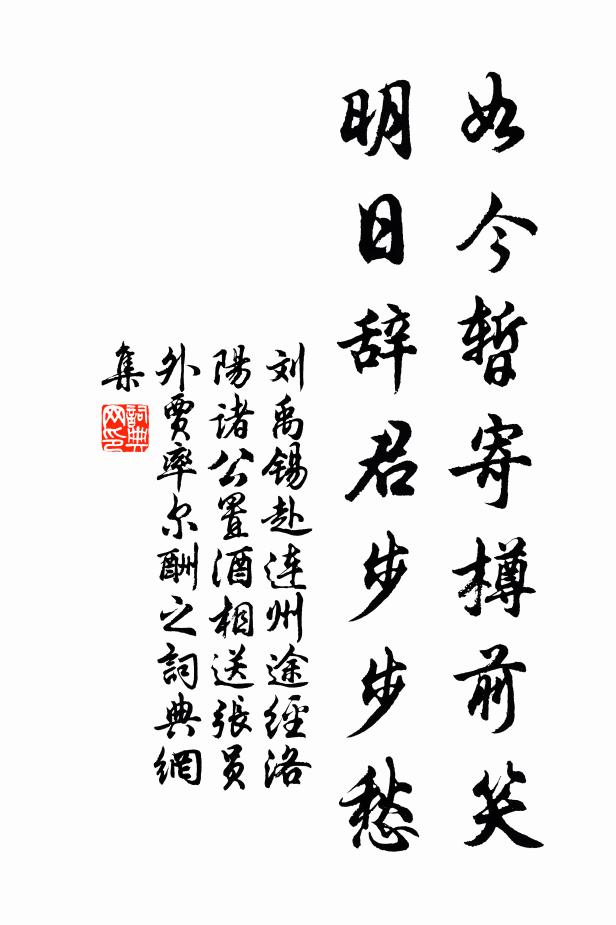 如今暂寄樽前笑
明日辞君步步愁
刘禹锡赴连州途经洛
陽诸公置酒相送張员
外賈率尔酬之詞典網
集
詞典网印